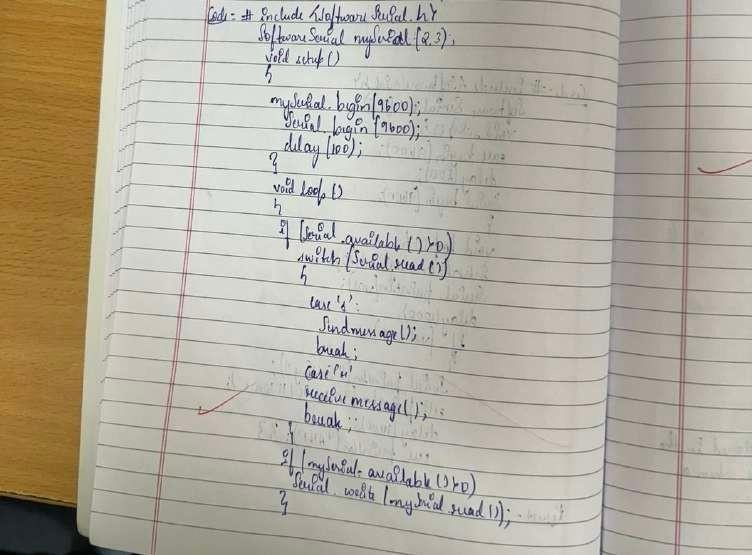 Code:- # include <Software Serial.h>
Software Serial mySerial (2,3);
void setup()
{
mySerial.begin(9600);
Serial.begin (9600);
delay (100);
}
void loop()
{
if (Serial.available ()>0)
switch (Serial.read())
{
case 's':
Sendmessage();
break;
case 'r'
receive message();
break;
}
if (mySerial.available ()>0)
Serial.write (mySerial.read());
}